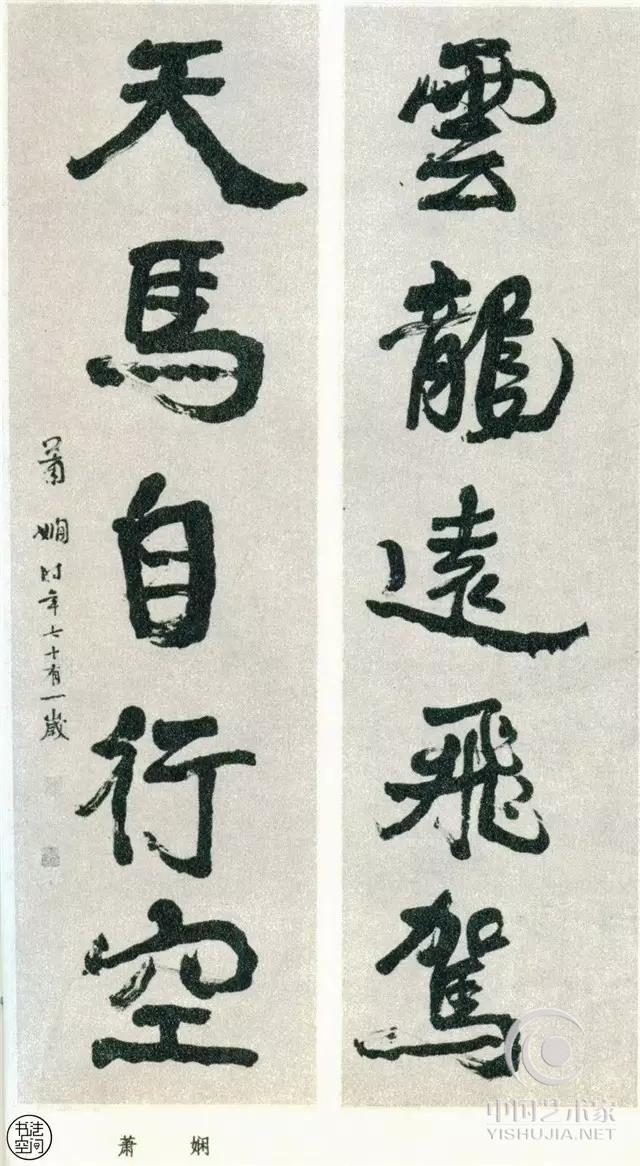 雲龍遠飛駕
天馬自行空
蕭嫻時年七十有一歲
萧 娴
书法
空间
中国艺术家
YISHUJIA.NET